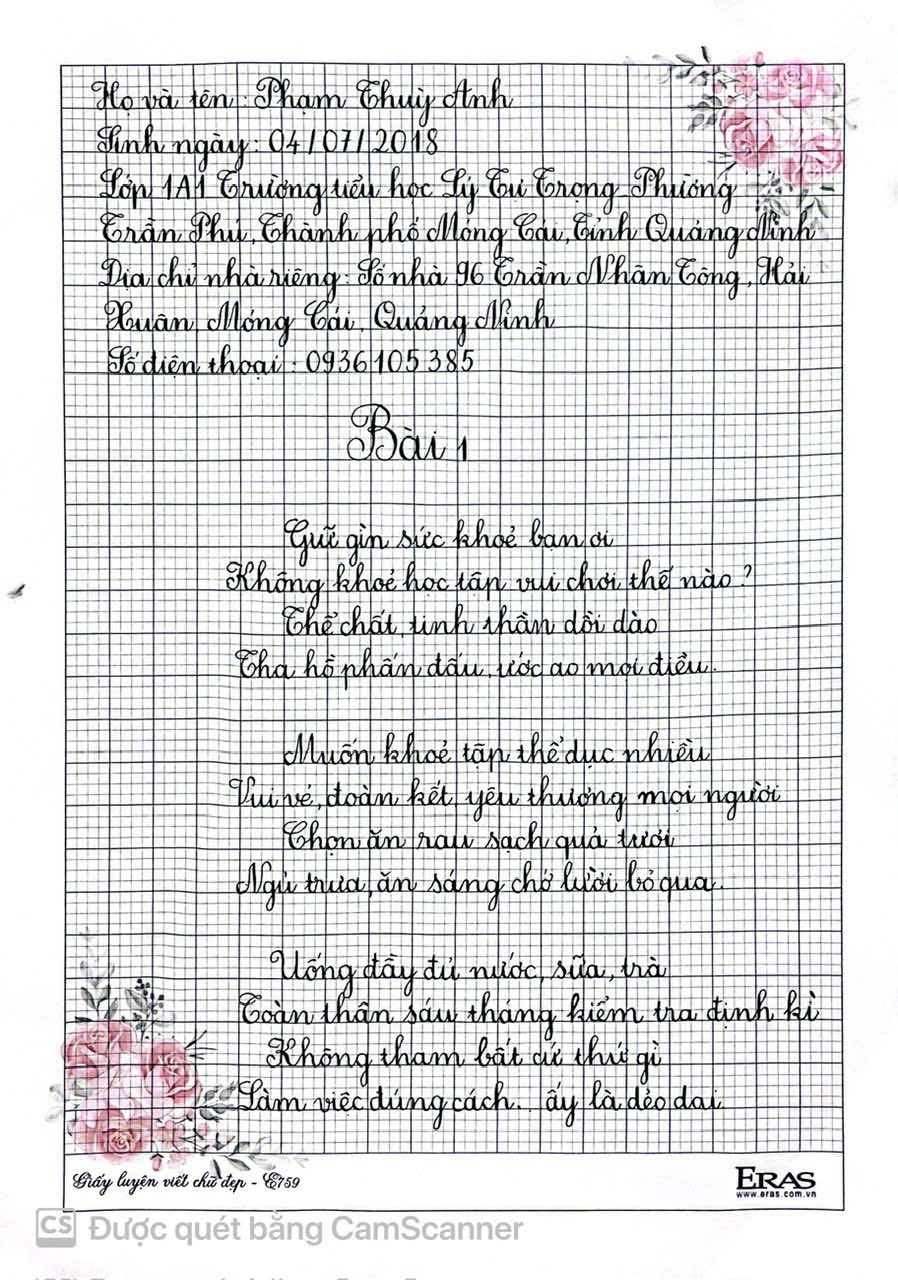 Họ và tên : Phạm Thuỳ Anh
Sinh ngày : 04/07/2018
Lớp 1A1 Trường tiểu học Lý Tự Trọng Phường
Trần Phú, Thành phố Móng Cái, Tỉnh Quảng Ninh
Địa chỉ nhà riêng : Số nhà 96 Trần Nhân Tông, Hải
Xuân, Móng Cái, Quảng Ninh
Số điện thoại : 0936 105 385
Bài 1
Giữ gìn sức khoẻ bạn ơi
Không khoẻ học tập vui chơi thế nào ?
Thể chất, tinh thần dồi dào
Tha hồ phấn đấu, ước ao mọi điều.
Muốn khoẻ tập thể dục nhiều
Vui vẻ, đoàn kết, yêu thương mọi người
Chọn ăn rau sạch quả tươi
Ngủ trưa, ăn sáng chớ lười bỏ qua.
Uống đầy đủ nước, sữa, trà
Toàn thân sáu tháng kiểm tra định kì
Không tham bất cứ thứ gì
Làm việc đúng cách... ấy là dẻo dai
Giấy luyện viết chữ đẹp - E759
ERAS
www.eras.com.vn
CS Được quét bằng CamScanner